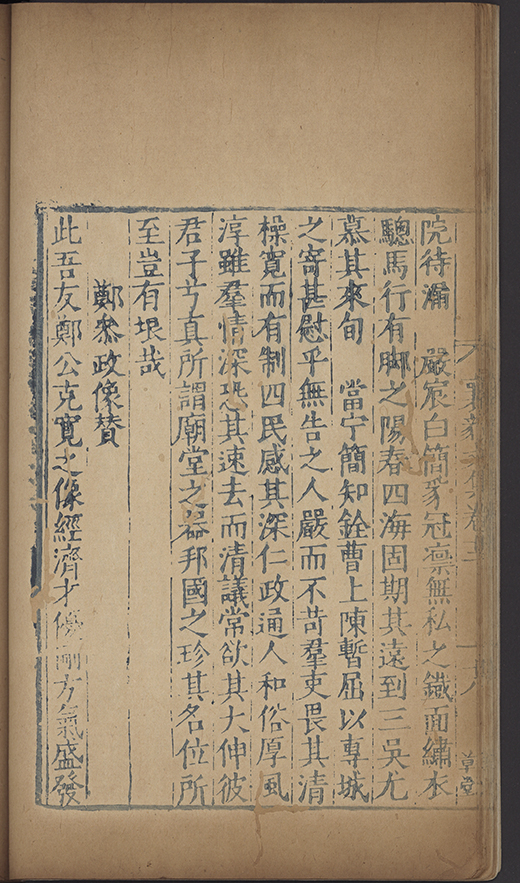 院待漏　嚴宸白簡豸冠凛無私之鐵面繡衣
驄馬行有脚之陽春四海固期其遠到三吳尤
慕其來旬　當宁簡知銓曹上陳暫屈以專城
之寄甚慰乎無告之人嚴而不苛羣吏畏其清
操寬而有制四民感其深仁政通人和俗厚風
淳雖羣情深恐其速去而清議常欲其大伸彼
君子兮真所謂廟堂之器邦國之珍其名位所
至豈有垠哉
鄭叅政像賛
此吾友鄭公克寬之像經濟才優剛方氣盛發
集卷三
草堂